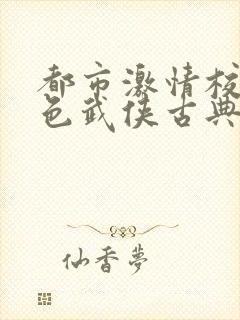 都市激情校
色武侠古典
仙香夢